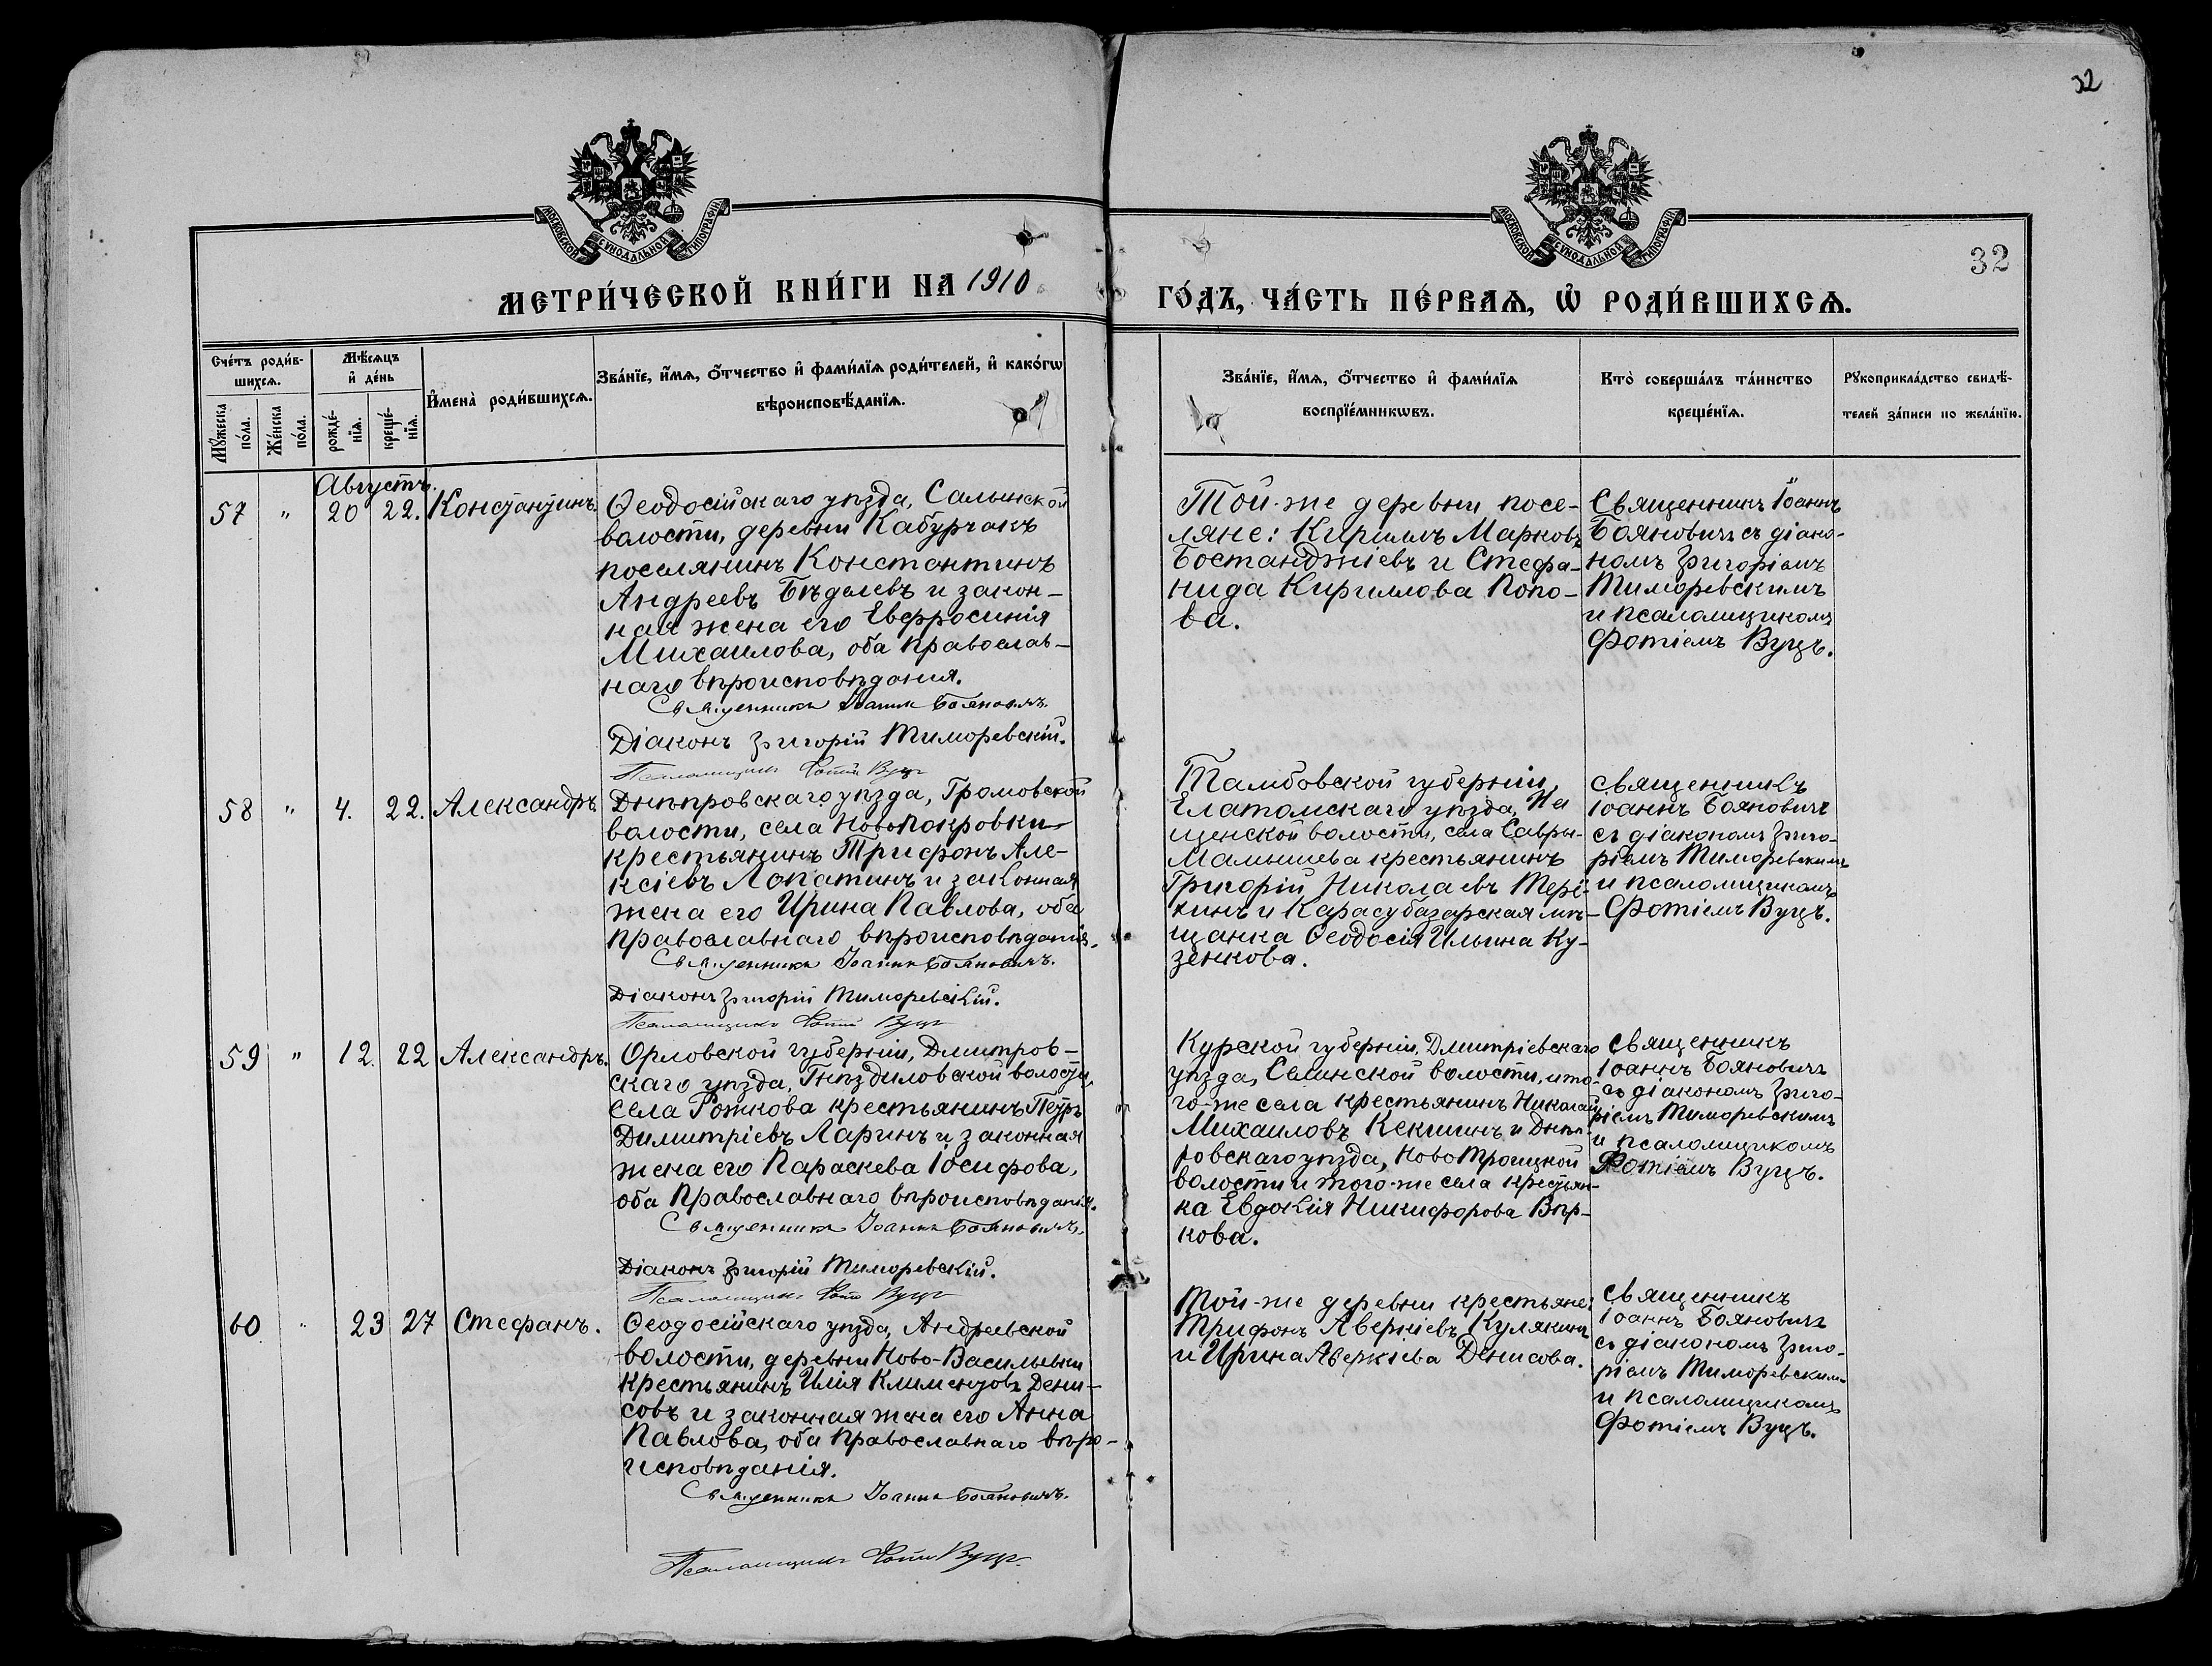 32
МОСКОВСКОЙ СУНОДАЛЬНОЙ ТИПОГРАФІИ
МОСКОВСКОЙ СУНОДАЛЬНОЙ ТИПОГРАФІИ
32
МЕТРИ́ЧЕСКОЙ КНИ́ГИ НА 1910 ГО́ДЪ, ЧА́СТЬ ПЕ́РВАѦ, Ѡ҆ РОДИ́ВШИХСѦ.
Сче́тъ роди́в-
шихсѧ.
Мꙋ́жеска по́ла.
Же́нска по́ла.
Мѣ́сѧцъ
и҆ де́нь
рожде́-
нїѧ.
креще́-
нїѧ.
И҆мена̀ роди́вшихсѧ.
Зва́нїе, и҆́мѧ, ѻ҆́тчество и҆ фами́лїѧ роди́телей, и҆ како́гѡ
вѣроисповѣ́данїѧ.
Зва́нїе, и҆́мѧ, ѻ҆́тчество и҆ фами́лїѧ
воспрїе́мникѡвъ.
Кто̀ соверша́лъ та́инство
креще́нїѧ.
Рꙋкоприкла́дство свидѣ́-
телей за́писи по жела́нїю.
Августъ.
57 " 20 22. Константинъ.
Ѳеодосійскаго уѣзда, Салынской
волости, деревни Кабурчакъ
поселянинъ Константинъ
Андреевъ Бѣдалевъ и закон-
ная жена его Евфросинія
Михаилова, оба православ-
наго вѣроисповѣданія.
Священникъ Іоаннъ Бояновичъ.
Діаконъ Григорій Тиморевскій.
Псаломщикъ Фотій Вуцъ
Той-же деревни посе-
ляне: Кириллъ Марковъ
Бостанджіевъ и Стефа-
нида Кириллова Попо-
ва.
Священникъ Іоаннъ
Бояновичъ съ діако-
номъ Григоріемъ
Тиморевскимъ
и псаломщикомъ
Фотіемъ Вуцъ.
58 " 4. 22. Александръ
Днѣпровскаго уѣзда, Громовской
волости, села Новопокровки
крестьянинъ Трифонъ Але-
ксіевъ Лопатинъ и законная
жена его Ирина Павлова, оба
православнаго вѣроисповѣданія.
Священникъ Іоаннъ Бояновичъ.
Діаконъ Григорій Тиморевскій.
Псаломщикъ Фотій Вуцъ
Тамбовской губерніи,
Елатомскаго уѣзда,
щенской волости, села Савры-
Мамышева крестьянинъ
Григорій Николаевъ Тере-
кинъ и Карасубазарская мѣ-
щанка Ѳеодосія Ильина Ку-
зенкова.
Священникъ
Іоаннъ Бояновичъ
съ діакономъ Григо-
ріемъ Тиморевскимъ
и псаломщикомъ
Фотіемъ Вуцъ.
59 " 12. 22 Александръ.
Орловской губерніи, Дмитров-
скаго уѣзда, Гнѣздиловской волости,
села Рожкова крестьянинъ Петръ
Димитріевъ Ларинъ и законная
жена его Параскева Іосифова,
оба православнаго вѣроисповѣданія.
Священникъ Іоаннъ Бояновичъ.
Діаконъ Григорій Тиморевскій.
Псаломщикъ Фотій Вуцъ
Курской губерніи, Дмитріевскаго
уѣзда, Селинской волости, и то-
го-же села крестьянинъ Николай
Михаиловъ Кекшинъ и Днѣп-
ровскаго уѣзда, НовоТроицкой
волости и того-же села крестьян-
ка Евдокія Никифорова Вѣр-
кова.
Священникъ
Іоаннъ Бояновичъ
съ діакономъ Григо-
ріемъ Тиморевскимъ
и псаломщикомъ
Фотіемъ Вуцъ.
60 " 23 27 Стефанъ.
Ѳеодосійскаго уѣзда, Андреевской
волости, деревни Ново-Васильевки
крестьянинъ Илія Климентовъ Дени-
совъ и законная жена его Анна
Павлова, оба православнаго вѣро-
исповѣданія.
Священникъ Іоаннъ Бояновичъ.
Псаломщикъ Фотій Вуцъ.
Той-же деревни крестьяне:
Трифонъ Аверкіевъ Кулякинъ
и Ирина Аверкіева Денисова.
Священникъ
Іоаннъ Бояновичъ
съ діакономъ Григо-
ріемъ Тиморевскимъ
и псаломщикомъ
Фотіемъ Вуцъ.